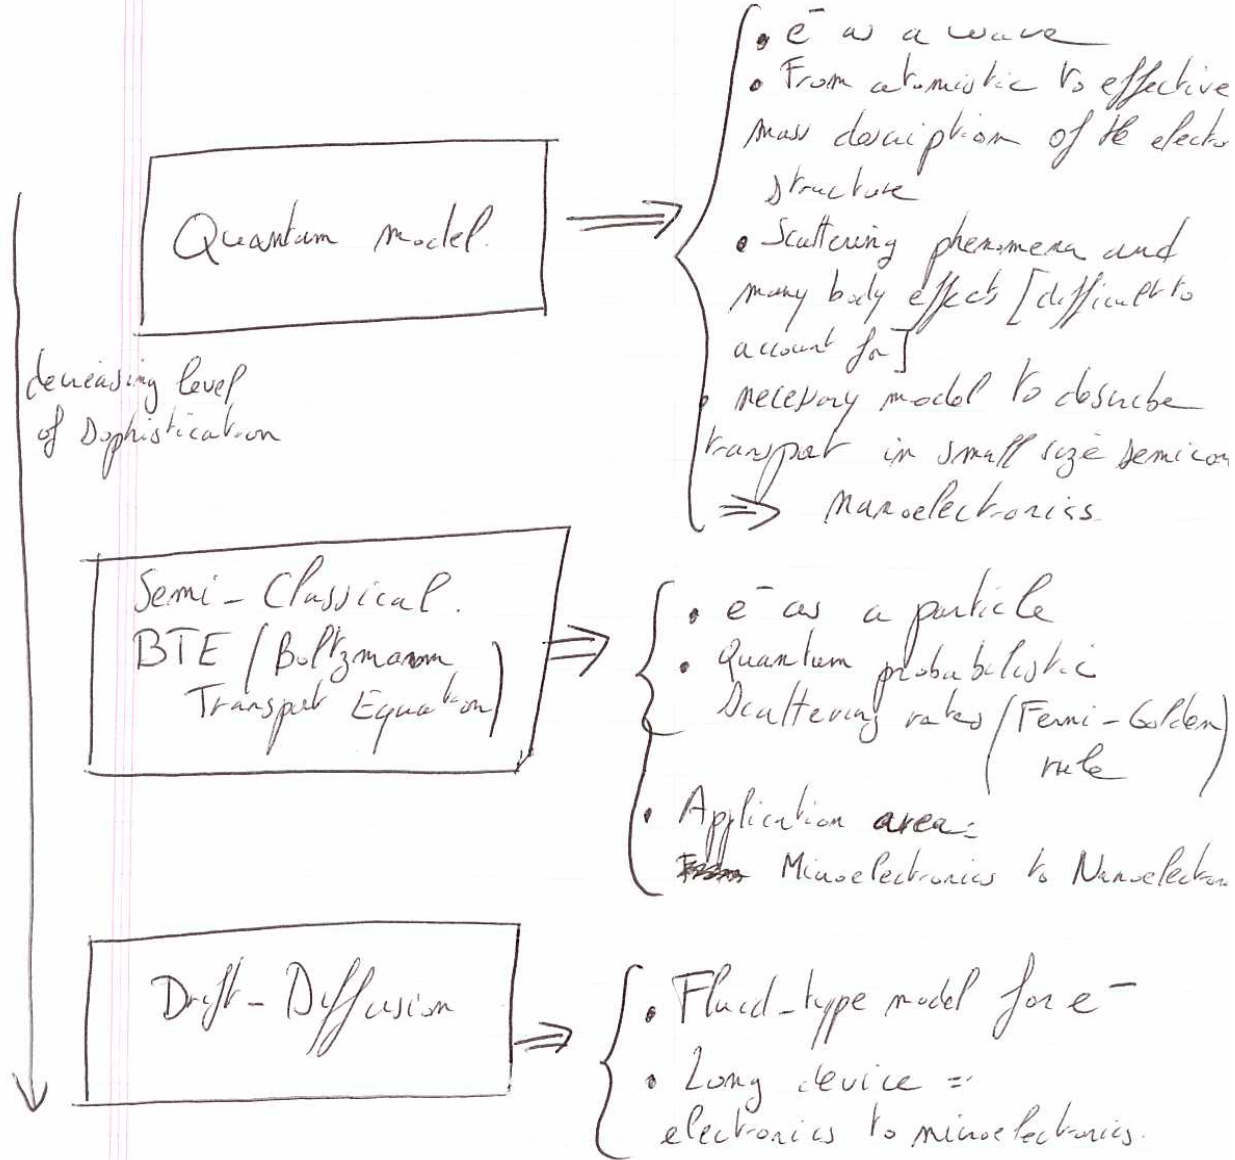 • e⁻ as a wave
• From atomistic to effective
mass description of the electro
structure
Quantum model.
• Scattering phenomena and
many body effects [difficult to
account for]
• necessary model to describe
transport in small size semicon
⇒ Nanoelectronics.
decreasing level
of Sophistication
Semi-Classical.
BTE (Boltzmann
Transport Equation)
• e⁻ as a particle
• Quantum probabilistic
Scattering rates (Fermi-Golden
rule)
• Application area:
Microelectronics to Nanoelectron
Drift-Diffusion
• Fluid-type model for e⁻
• Long device =
electronics to microelectronics.